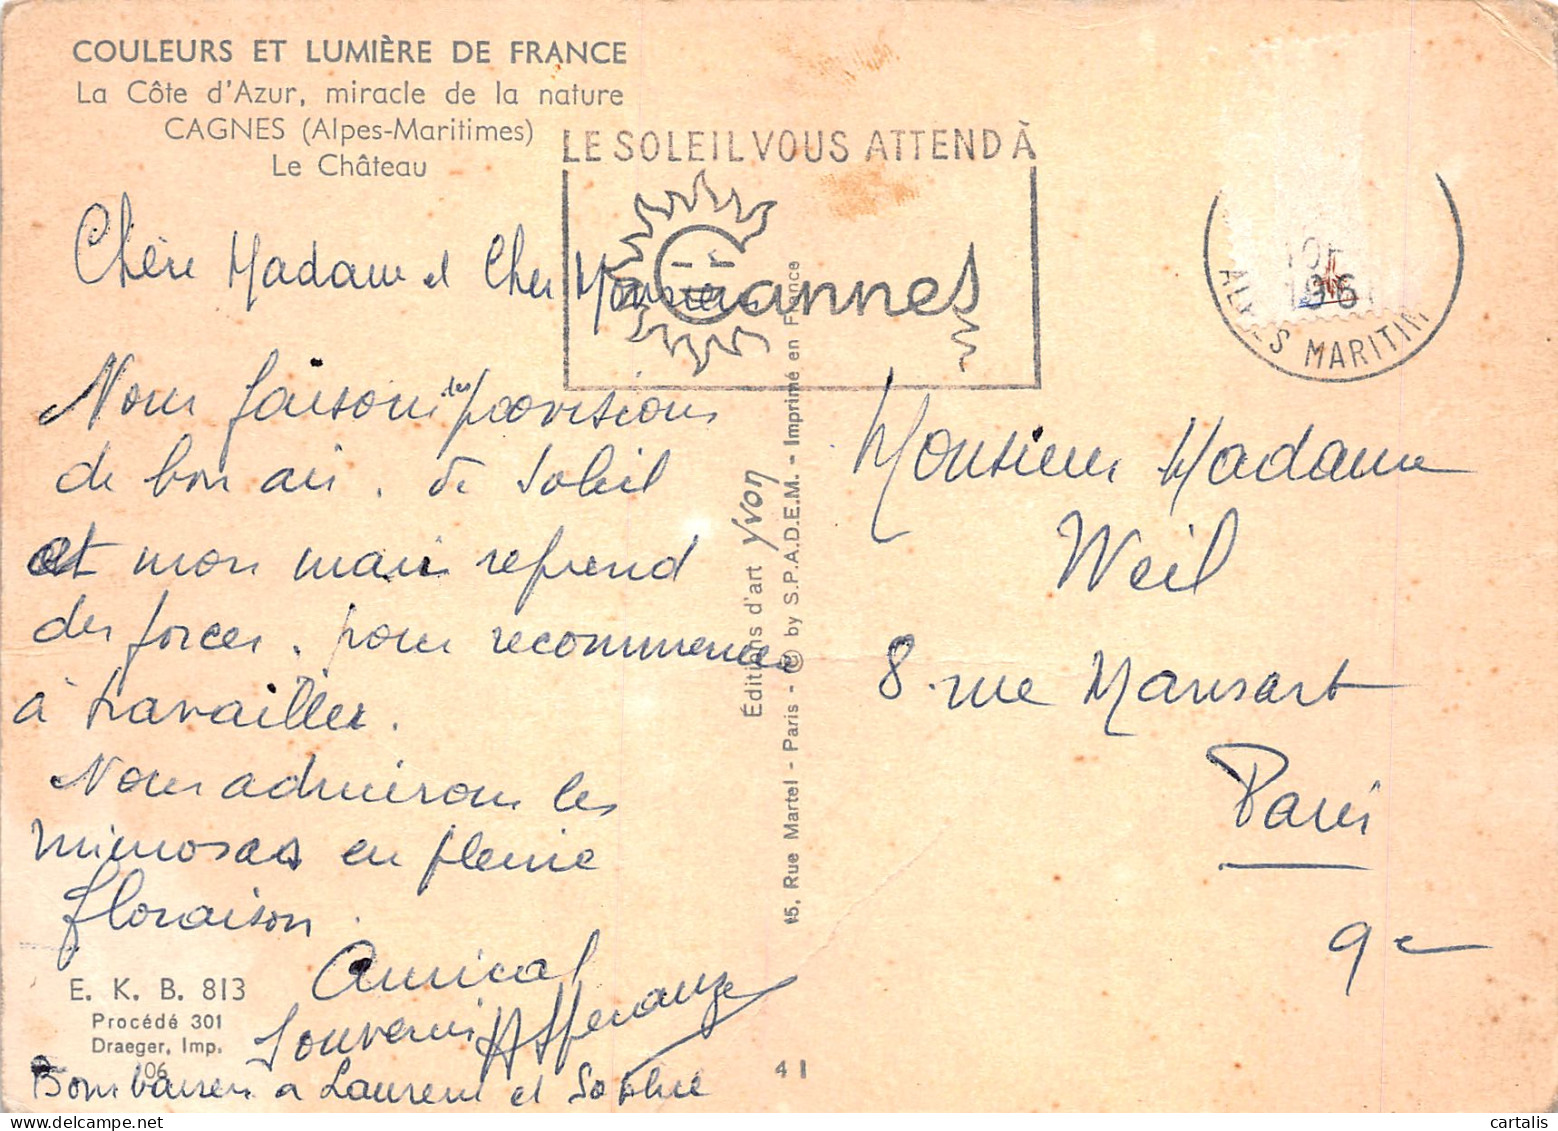 COULEURS ET LUMIÈRE DE FRANCE
La Côte d'Azur, miracle de la nature
CAGNES (Alpes-Maritimes)
Le Château
LE SOLEIL VOUS ATTEND À
Cannes
ALPES MARITIM
Chère Madame et Cher Monsieur
Nous faisons des provisions
de bon air. de soleil
et mon mari reprend
des forces. pour recommencer
à travailler.
Nous admirons les
mimosas en pleine
floraison.
Amical
Souvenir
Bons baisers à Laurent et Sophie
E. K. B. 813
Procédé 301
Draeger, Imp.
106
Éditions d'art Yvon
15, Rue Martel - Paris - © by S.P.A.D.E.M. - Imprimé en France
41
Monsieur Madame
Weil
8 rue Mansart
Paris
9e
cartalis